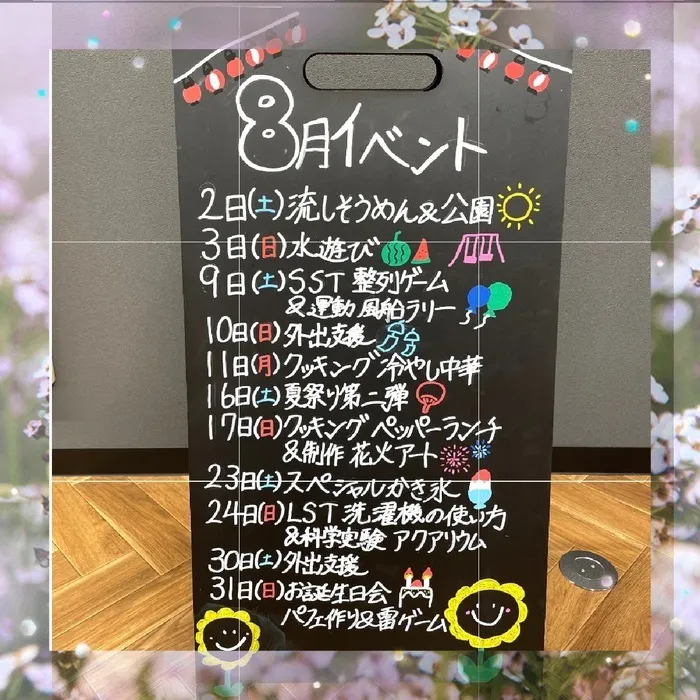 8月イベント
2日(土)流しそうめん&公園
3日(日)水遊び
9日(土)SST 整列ゲーム
&運動 風船ラリー
10日(日)外出支援
11日(月)クッキング 冷やし中華
16日(土)夏祭り第二弾
17日(日)クッキング ペッパーランチ
&制作 花火アート
23日(土)スペシャルかき氷
24日(日)LST 洗濯機の使い方
&科学実験 アクアリウム
30日(土)外出支援
31日(日)お誕生日会
パフェ作り&雷ゲーム